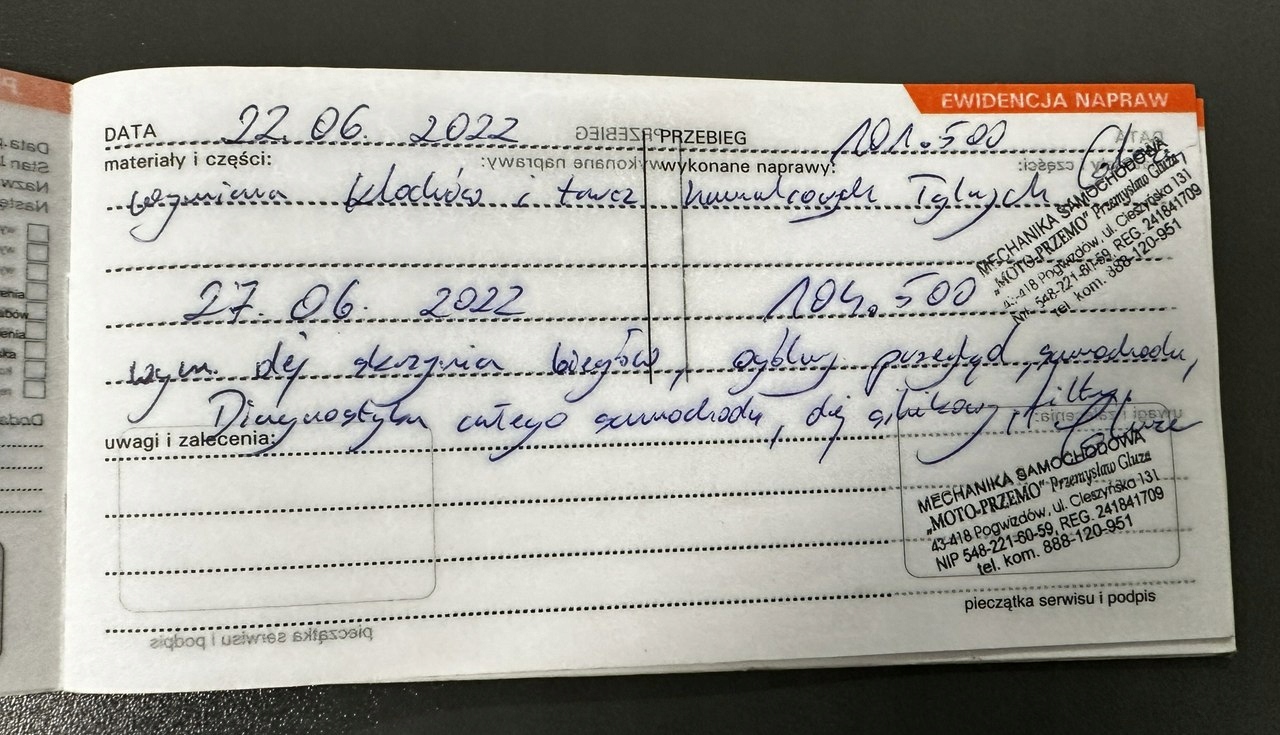 EWIDENCJA NAPRAW
DATA 22.06. 2022 PRZEBIEG 101.500
materiały i części: wykonane naprawy:
wymiana klocków i tarcz hamulcowych Tylnych
MECHANIKA SAMOCHODOWA
„MOTO-PRZEMO" Przemysław Gluza
43-418 Pogwizdów, ul. Cieszyńska 131
NIP 548-221-60-59, REG. 241841709
tel. kom. 888-120-951
27. 06. 2022 104.500
wym. olej skrzynia biegów, ogólny przegląd samochodu,
Diagnostyka całego samochodu, olej silnikowy, filtry
uwagi i zalecenia:
MECHANIKA SAMOCHODOWA
„MOTO-PRZEMO" Przemysław Gluza
43-418 Pogwizdów, ul. Cieszyńska 131
NIP 548-221-60-59, REG. 241841709
tel. kom. 888-120-951
pieczątka serwisu i podpis